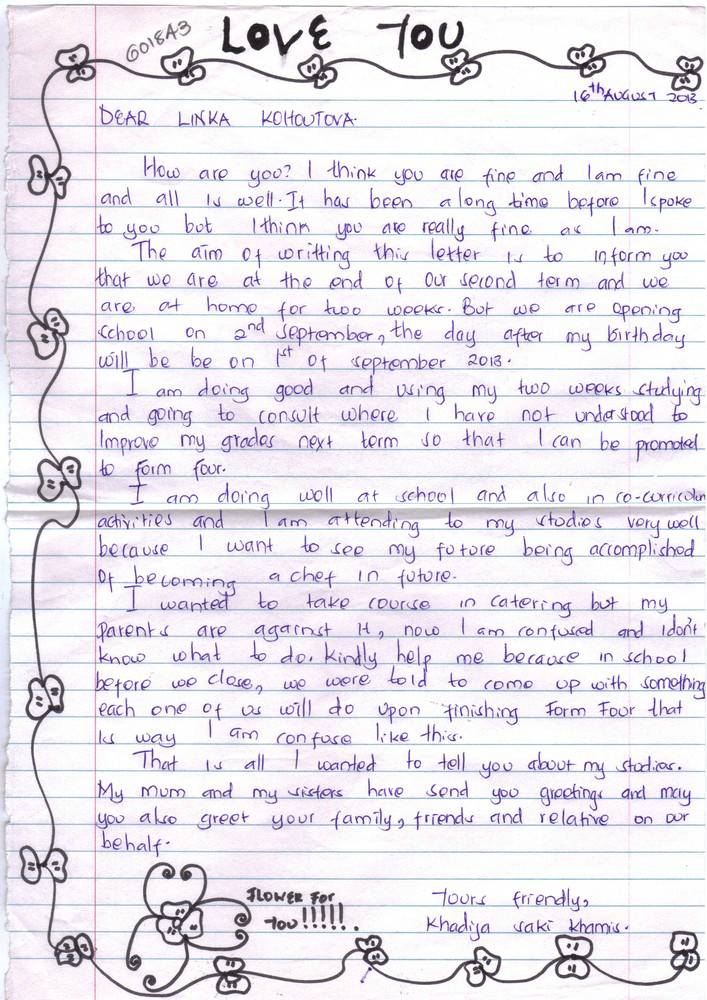 GO18A3
LOVE YOU
16th AUGUST 2013
DEAR LINKA KOHOUTOVA.
How are you? I think you are fine and I am fine
and all is well. It has been a long time before I spoke
to you but I think you are really fine as I am.
The aim of writting this letter is to inform you
that we are at the end of our second term and we
are at home for two weeks. But we are opening
school on 2nd september, the day after my birthday
will be be on 1st of september 2013.
I am doing good and using my two weeks studying
and going to consult where I have not understood to
improve my grades next term so that I can be promoted
to form four.
I am doing well at school and also in co-curricular
activities and I am attending to my studies very well
because I want to see my future being accomplished
of becoming a chef in future.
I wanted to take course in catering but my
parents are against it, now I am confused and I don't
know what to do. Kindly help me because in school
before we close, we were told to come up with something
each one of us will do upon finishing Form Four that
is way I am confuse like this.
That is all I wanted to tell you about my studies.
My mum and my sisters have send you greetings and may
you also greet your family, friends and relative on our
behalf.
FLOWER FOR
YOU!!!!!.
Yours friendly,
Khadija saki khamis.